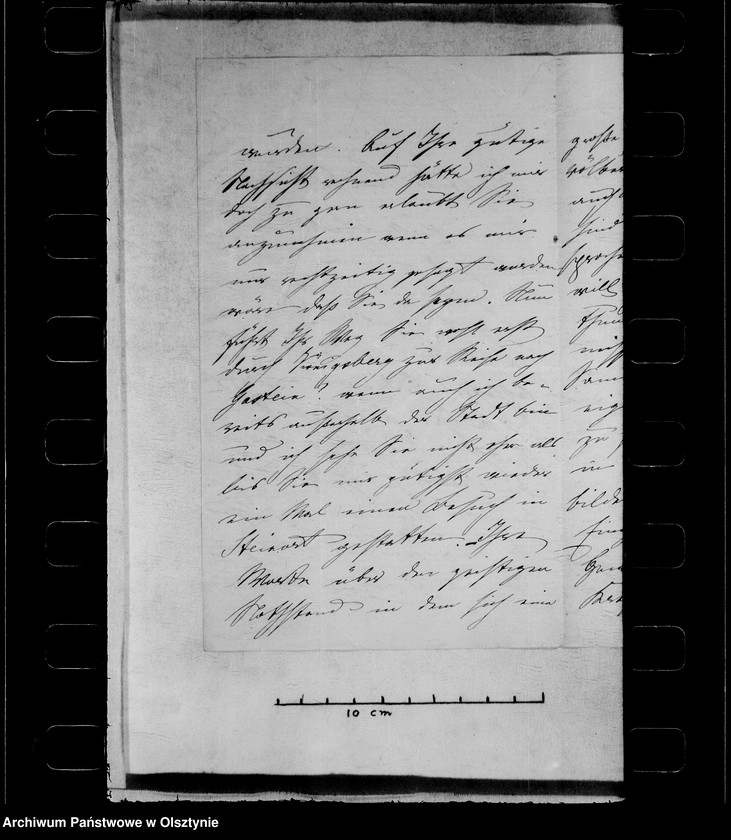 würden. Auf Ihre gütige
Nachsicht rechnend hätte ich mir
doch zu gern erlaubt Sie
anzunehmen wenn es mir
nur rechtzeitig gesagt worden
wäre daß Sie da seyen. Nun
führt Ihr Weg Sie wohl erst
durch Königsberg zur Reise nach
Gastein? wenn auch ich be-
reits außerhalb der Stadt bin
und ich sehe Sie nicht eher als
bis Sie mir gütigst wieder
ein Mal einen Besuch in
Steinort gestatten. Ihre
Worte über den geistigen
Nothstand in dem sich eine
große
auch
sind
will
mich
zu
in
10 cm
Archiwum Państwowe w Olsztynie